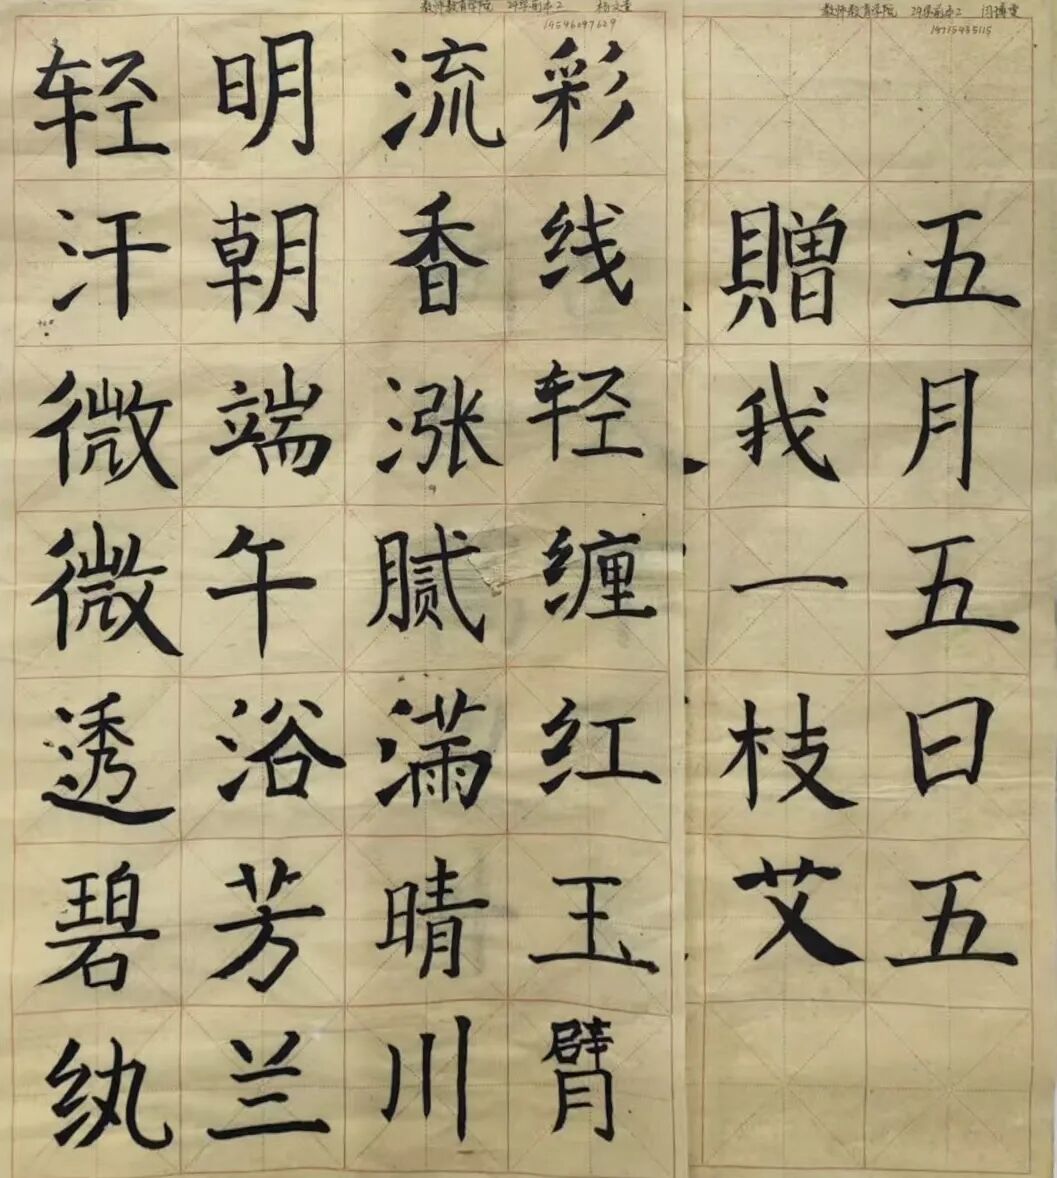 教师教育学院 学前本2
轻汗微微透碧纨
明朝端午浴芳兰
流香涨腻满晴川
彩线轻缠红玉臂
教师教育学院 学前本2
五月五日五
贈我一枝艾